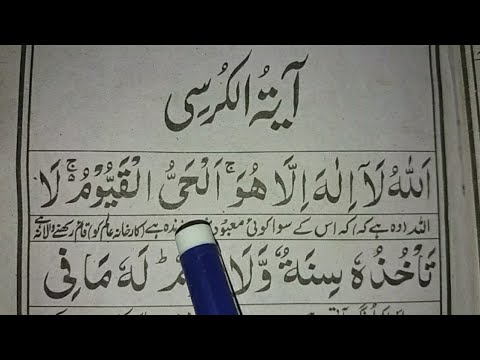 آيَةُ الْكُرْسِى
اَللّٰهُ لَاۤ اِلٰهَ اِلَّا هُوَ ۚ اَلْحَىُّ الْقَيُّوْمُ ۚ لَا
اللہ (وہ ہے کہ) کہ اس کے سوا کوئی معبود زندہ ہے (کارخانہ عالم کو) قائم رکھنے والا نہ اسے
تَاْخُذُهٗ سِنَةٌ وَّلَا لَهٗ مَا فِى